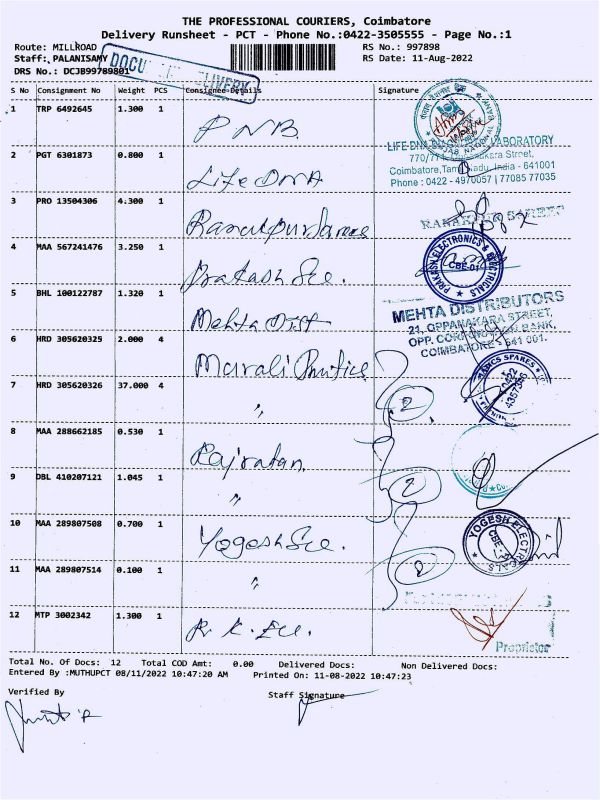 THE PROFESSIONAL COURIERS, Coimbatore
Delivery Runsheet - PCT - Phone No.:0422-3505555 - Page No.:1
Route: MILLROAD
RS No.: 997898
Staff: PALANISAMY
RS Date: 11-Aug-2022
DRS No.: DCJB99789801
S No Consignment No Weight PCS Consignee Details Signature
1 TRP 6492645 1.300 1 PNB
2 PGT 6301873 0.800 1 Life DNA
LIFE DNA LABORATORY
Street,
Coimbatore, India - 641001
Phone : 0422 - 4970057 | 77085 77035
3 PRO 13504306 4.300 1
4 MAA 567241476 3.250 1 Prakash Ele.
PRAKASH ELECTRONICS & ELECTRICALS
CBE-01
5 BHL 100122787 1.320 1 Mehta Dist
MEHTA DISTRIBUTORS
21, OPPANAKARA STREET,
OPP. CORPORATION BANK,
COIMBATORE - 641 001.
6 HRD 305620325 2.000 4
7 HRD 305620326 37.000 4 "
2
0422
4357346
8 MAA 288662185 0.530 1 Rajratan
9 DBL 410207121 1.045 1 "
2
10 MAA 289807508 0.700 1 Yogesh Ele.
YOGESH ELECTRICALS
CBE-1
11 MAA 289807514 0.100 1 "
2
12 MTP 3002342 1.300 1 R. K. Ele.
Proprietor
Total No. Of Docs: 12 Total COD Amt: 0.00 Delivered Docs: Non Delivered Docs:
Entered By :MUTHUPCT 08/11/2022 10:47:20 AM Printed On: 11-08-2022 10:47:23
Verified By Staff Signature